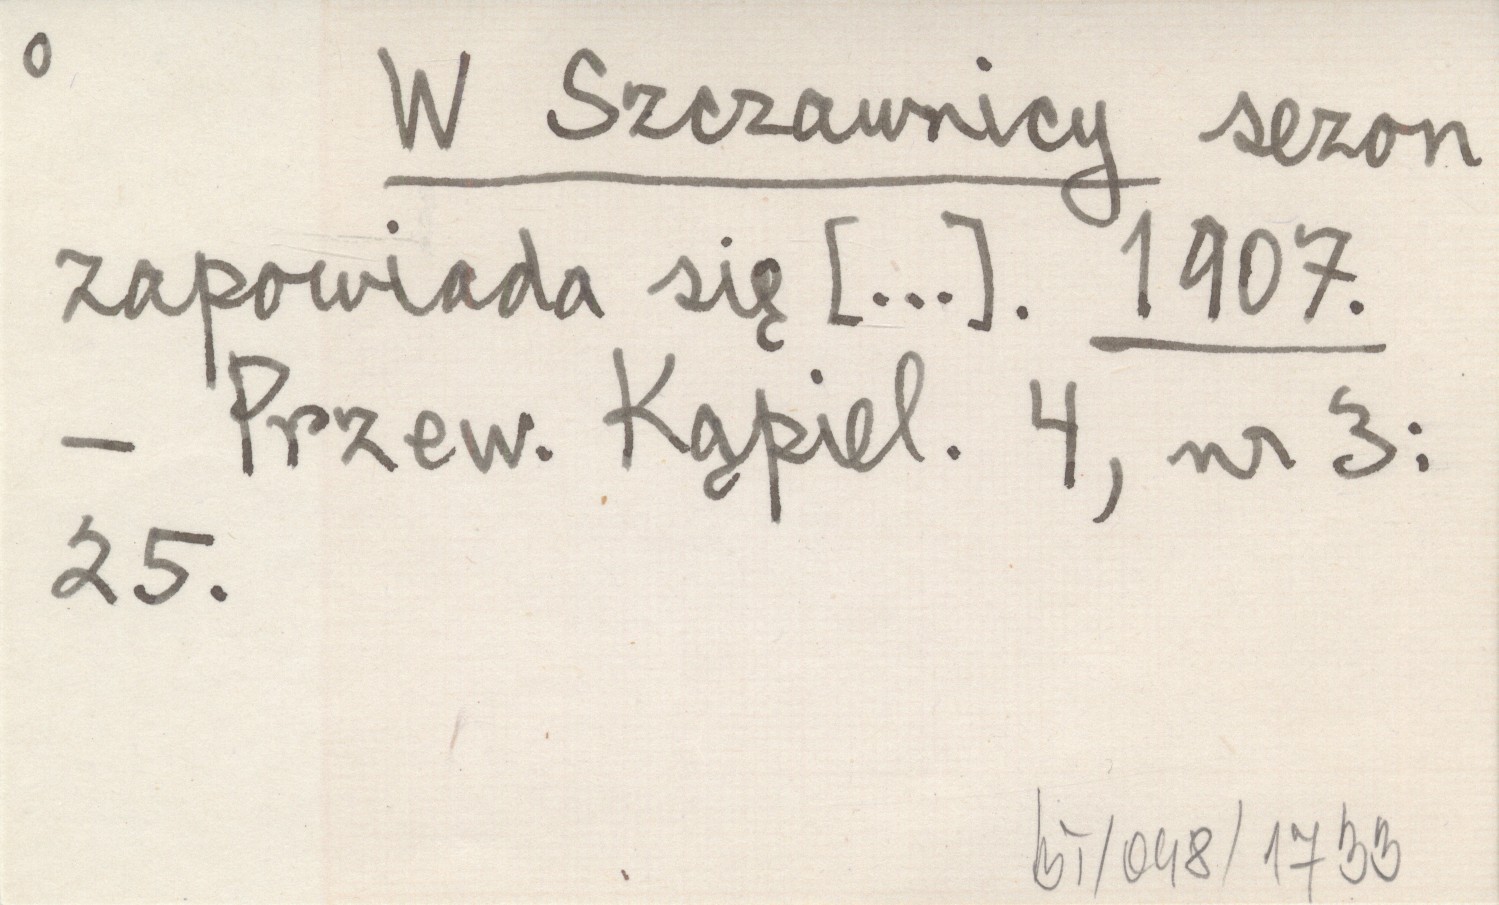 o
W Szczawnicy sezon
zapowiada się [...]. 1907.
– Przew. Kąpiel. 4, nr 3:
25.
BI/048/1733